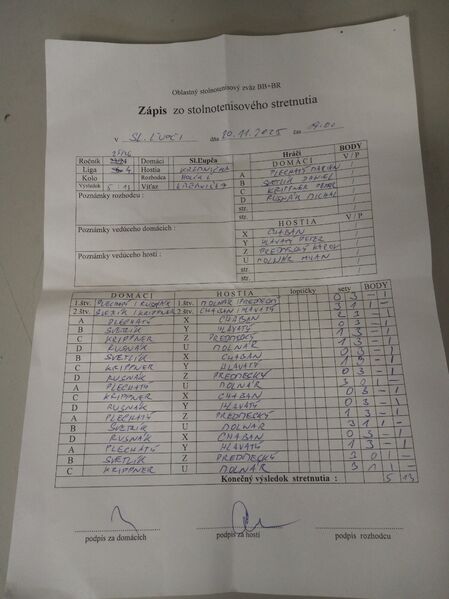 Oblastný stolnotenisový zväz BB+BR
Zápis zo stolnotenisového stretnutia
v SL. ĽUPČI dňa 30.11.2025 čas
Ročník Domáci Sl.Ľupča
Liga 4 Hostia KREMNIČKA
Kolo Rozhodca
Výsledok 5 : 13 Víťaz KREMNIČKA
Poznámky rozhodcu :
Poznámky vedúceho domácich :
Poznámky vedúceho hostí :
Hráči BODY
DOMÁCI V / P
A PLECHATÝ MARIÁN /
B SVETLÍK DANIEL /
C KRIPPNER /
D RUSNÁK MICHAL /
str. /
str.
HOSTIA V / P
X CHABAN /
Y HLAVATÝ PETER /
Z PREDMESKÝ KAROL /
U MOLNÁR MILAN /
str. /
str. /
DOMÁCI HOSTIA loptičky sety BODY
1.štv. PLECHATÝ / RUSNÁK 1.štv. MOLNÁR / PREDMESKÝ 0 3 - 1
2.štv. SVETLÍK / KRIPPNER 2.štv. CHABAN / HLAVATÝ 3 1 1 -
A PLECHATÝ X CHABAN 2 3 - 1
B SVETLÍK Y HLAVATÝ 0 3 - 1
C KRIPPNER Z PREDMESKÝ 1 3 - 1
D RUSNÁK U MOLNÁR 0 3 - 1
B SVETLÍK X CHABAN 0 3 - 1
C KRIPPNER Y HLAVATÝ 1 3 - 1
D RUSNÁK Z PREDMESKÝ 0 3 - 1
A PLECHATÝ U MOLNÁR 3 0 1 -
C KRIPPNER X CHABAN 0 3 - 1
D RUSNÁK Y HLAVATÝ 0 3 - 1
A PLECHATÝ Z PREDMESKÝ 1 3 - 1
B SVETLÍK U MOLNÁR 3 1 1 -
D RUSNÁK X CHABAN 0 3 - 1
A PLECHATÝ Y HLAVATÝ 1 3 - 1
B SVETLÍK Z PREDMESKÝ 3 0 1 -
C KRIPPNER U MOLNÁR 3 1 1 -
Konečný výsledok stretnutia : 5 13
podpis za domácich podpis za hostí podpis rozhodcu